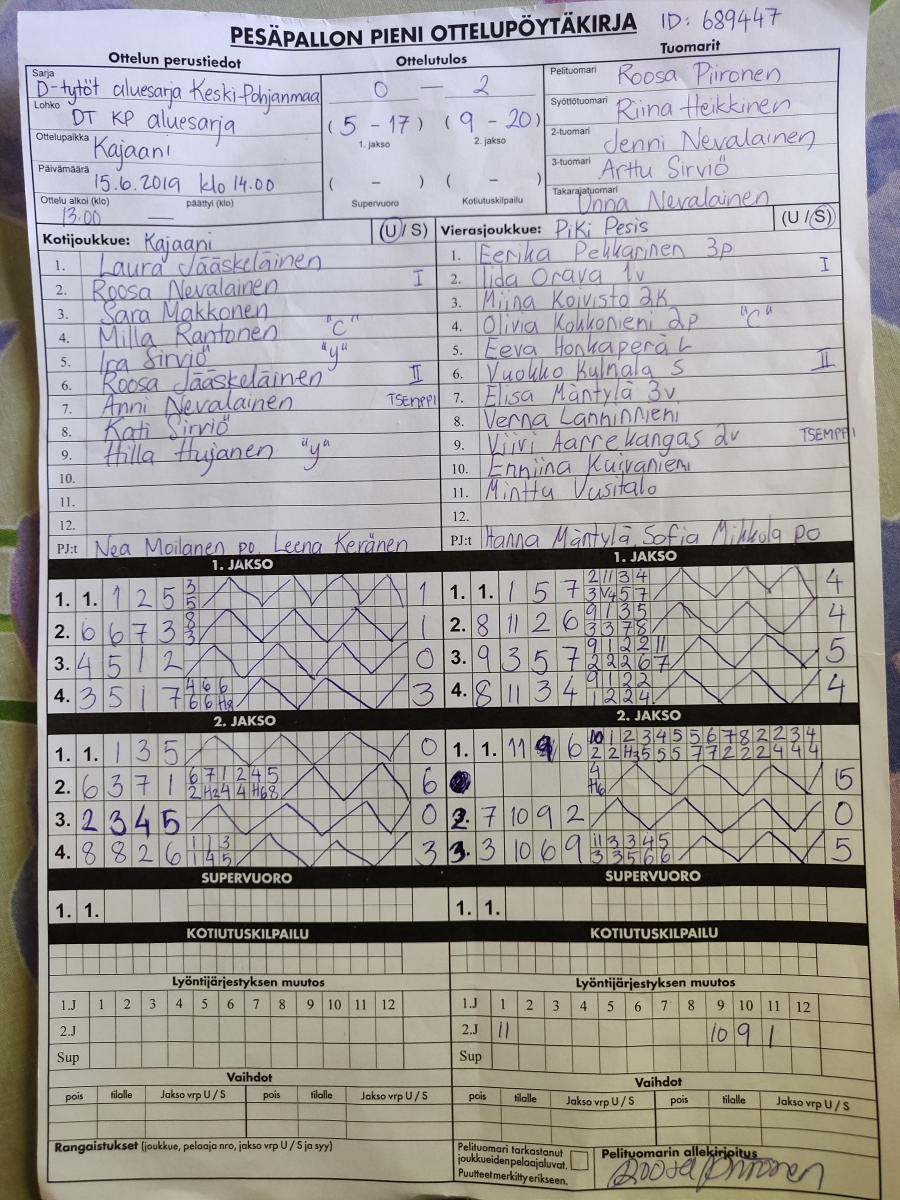 PESÄPALLON PIENI OTTELUPÖYTÄKIRJA ID: 689447
Ottelun perustiedot Ottelutulos Tuomarit
Sarja D-tytöt aluesarja Keski-Pohjanmaa
Lohko DT KP aluesarja
Ottelupaikka Kajaani
Päivämäärä 15.6.2019 klo 14.00
Ottelu alkoi (klo) 13.00 — päättyi (klo)
0 — 2
(5 - 17) (9 - 20)
1. jakso 2. jakso
( - ) ( - )
Supervuoro Kotiutuskilpailu
Pelituomari Roosa Piironen
Syöttötuomari Riina Heikkinen
2-tuomari Jenni Nevalainen
3-tuomari Arttu Sirviö
Takarajatuomari Onna Nevalainen
Kotijoukkue: Kajaani (U / S)
1. Laura Jääskeläinen
2. Roosa Nevalainen I
3. Sara Makkonen
4. Milla Rantonen "C"
5. Ira Sirviö "y"
6. Roosa Jääskeläinen II
7. Anni Nevalainen TSEMPPI
8. Kati Sirviö
9. Hilla Hujanen "y"
10.
11.
12.
PJ:t Nea Moilanen po Leena Keränen
Vierasjoukkue: PiKi Pesis (U / S)
1. Eerika Pekkarinen 3p
2. Iida Orava 1v I
3. Miina Koivisto 2K
4. Olivia Kokkonieni 2p "C"
5. Eeva Honkaperä L
6. Vuokko Kulmala S II
7. Elisa Mäntylä 3v
8. Verna Lanninnieni
9. Viivi Aarrekangas 2v TSEMPPI
10. Enniina Kuivaniemi
11. Minttu Uusitalo
12.
PJ:t Hanna Mäntylä, Sofia Mikkola po
1. JAKSO
1. 1. 1 2 5 3 5 1
2. 6 6 7 3 8 3 1
3. 4 5 1 2 0
4. 3 5 1 7 4 6 6 6 6 H8 3
1. JAKSO
1. 1. 1 5 7 2 11 3 4 3 V 4 5 7 4
2. 8 11 2 6 9 1 3 5 3 3 7 8 4
3. 9 3 5 7 9 1 2 2 11 2 2 2 6 7 5
4. 8 11 3 4 9 1 2 2 1 2 2 4 4
2. JAKSO
1. 1. 1 3 5 0
2. 6 3 7 1 6 7 1 2 4 5 2 H2 4 4 H6 8 6
3. 2 3 4 5 0
4. 8 8 2 6 1 1 3 1 4 5 3
2. JAKSO
1. 1. 11 9 6 10 1 2 3 4 5 5 6 7 8 2 2 3 4
2 2 H3 5 5 5 7 7 2 2 2 4 4 4
4 H6 15
2. 7 10 9 2 0
3. 3 10 6 9 11 3 3 4 5 3 3 5 6 6 5
SUPERVUORO SUPERVUORO
1. 1. 1. 1.
KOTIUTUSKILPAILU KOTIUTUSKILPAILU
Lyöntijärjestyksen muutos Lyöntijärjestyksen muutos
1.J 1 2 3 4 5 6 7 8 9 10 11 12 1.J 1 2 3 4 5 6 7 8 9 10 11 12
2.J 2.J 11 10 9 1
Sup Sup
Vaihdot Vaihdot
pois tilalle Jakso vrp U / S pois tilalle Jakso vrp U / S pois tilalle Jakso vrp U / S pois tilalle Jakso vrp U / S
Rangaistukset (joukkue, pelaaja nro, jakso vrp U / S ja syy)
Pelituomari tarkastanut
joukkueiden pelaajaluvat.
Puutteet merkitty erikseen.
Pelituomarin allekirjoitus
Roosa Piironen